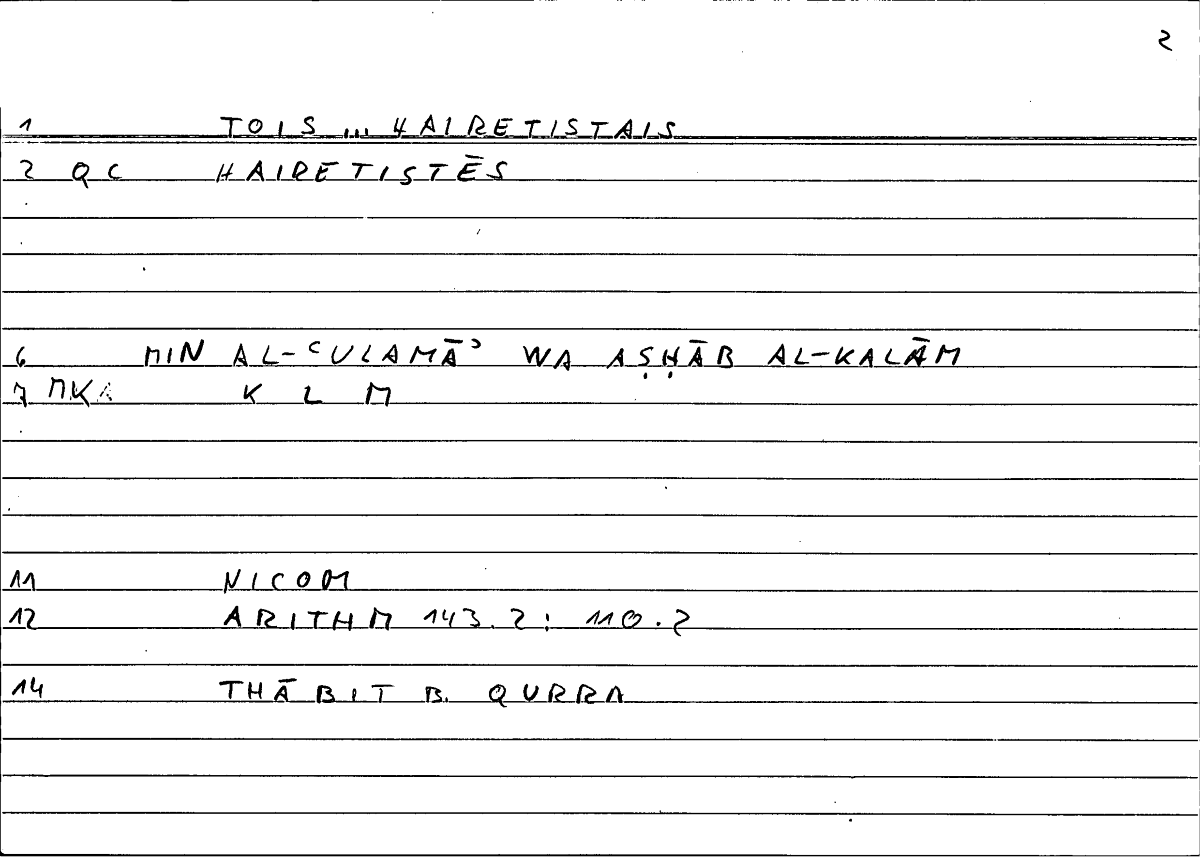 2
1 TOIS ... HAIRETISTAIS
2 QC HAIRETISTĒS
6 MIN AL-ʿULAMĀʾ WA AṢḤĀB AL-KALĀM
7 MKA K L M
11 NICOM
12 ARITHM 143.2: 110.2
14 THĀBIT B. QURRA